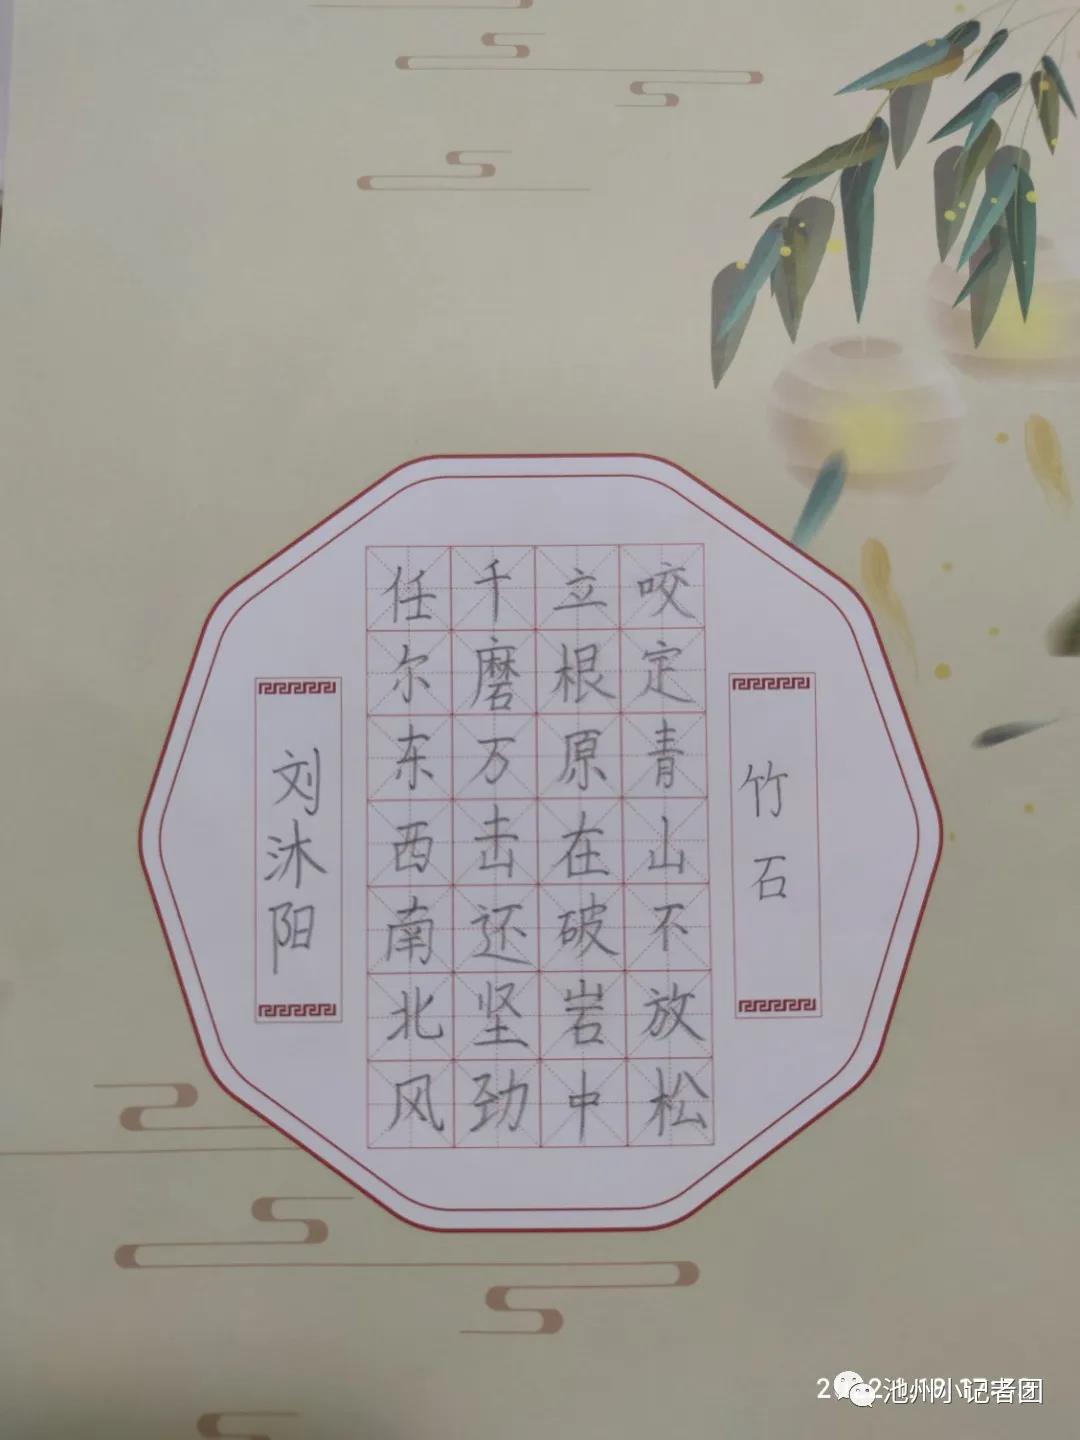 竹石
咬定青山不放松
立根原在破岩中
千磨万击还坚劲
任尔东西南北风
刘沐阳
池州小记者团